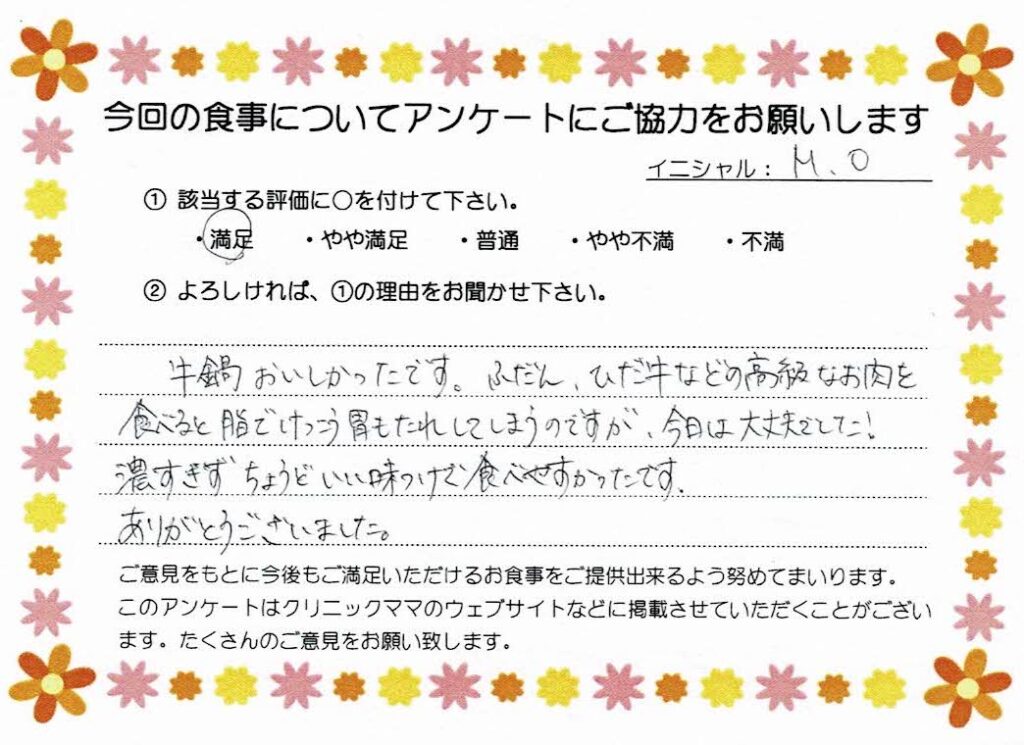 今回の食事についてアンケートにご協力をお願いします
イニシャル： M.O
① 該当する評価に○を付けて下さい。
・満足 ・やや満足 ・普通 ・やや不満 ・不満
② よろしければ、①の理由をお聞かせ下さい。
牛鍋おいしかったです。ふだん、ひだ牛などの高級なお肉を
食べると脂でけっこう胃もたれしてしまうのですが、今日は大丈夫でした!
濃すぎずちょうどいい味つけで食べやすかったです。
ありがとうございました。
ご意見をもとに今後もご満足いただけるお食事をご提供出来るよう努めてまいります。
このアンケートはクリニックママのウェブサイトなどに掲載させていただくことがござい
ます。たくさんのご意見をお願い致します。